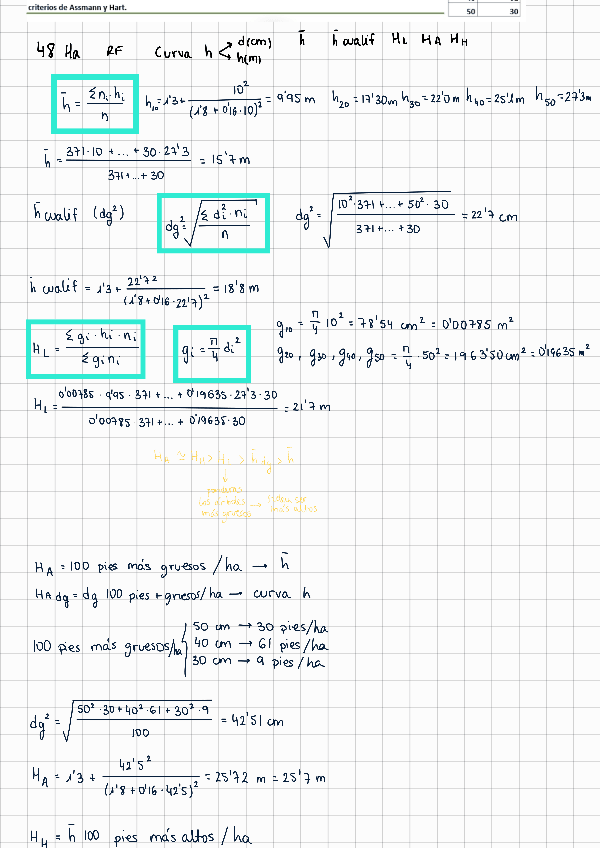 criterios de Assmann y Hart.
50 30
48 Ha RF Curva h < d(cm) h(m) h̄ h̄ cualif HL HA HH
h̄ = Σ ni·hi / n h10 = 1'3 + 10² / (1'8 + 0'16·10)² = 9'95 m h20 = 17'30m h30 = 22'0m h40 = 25'1m h50 = 27'3m
h̄ = 371·10 + ... + 30·27'3 / 371 + ... + 30 = 15'7 m
h̄ cualif (dg²) dg² = √(Σ di²·ni / n) dg² = √(10²·371 + ... + 50²·30 / 371 + ... + 30) = 22'7 cm
h̄ cualif = 1'3 + 22'7² / (1'8 + 0'16·22'7)² = 18'8 m
HL = Σ gi·hi·ni / Σ gi ni gi = π/4 di² g10 = π/4 10² = 78'54 cm² = 0'00785 m²
g20, g30, g40, g50 = π/4 · 50² = 1963'50 cm² = 0'19635 m²
HL = 0'00785 · 9'95 · 371 + ... + 0'19635 · 27'3 · 30 / 0'00785 · 371 + ... + 0'19635 · 30 = 21'7 m
ponderas
los árboles → suelen ser
más gruesos más altos
HA = 100 pies más gruesos /ha → h̄
HA dg = dg 100 pies + gruesos/ha → curva h
100 pies más gruesos/ha
50 cm → 30 pies/ha
40 cm → 61 pies/ha
30 cm → 9 pies/ha
dg² = √(50²·30 + 40²·61 + 30²·9 / 100) = 42'51 cm
HA = 1'3 + 42'5² / (1'8 + 0'16·42'5)² = 25'72 m = 25'7 m
HH = h̄ 100 pies más altos /ha